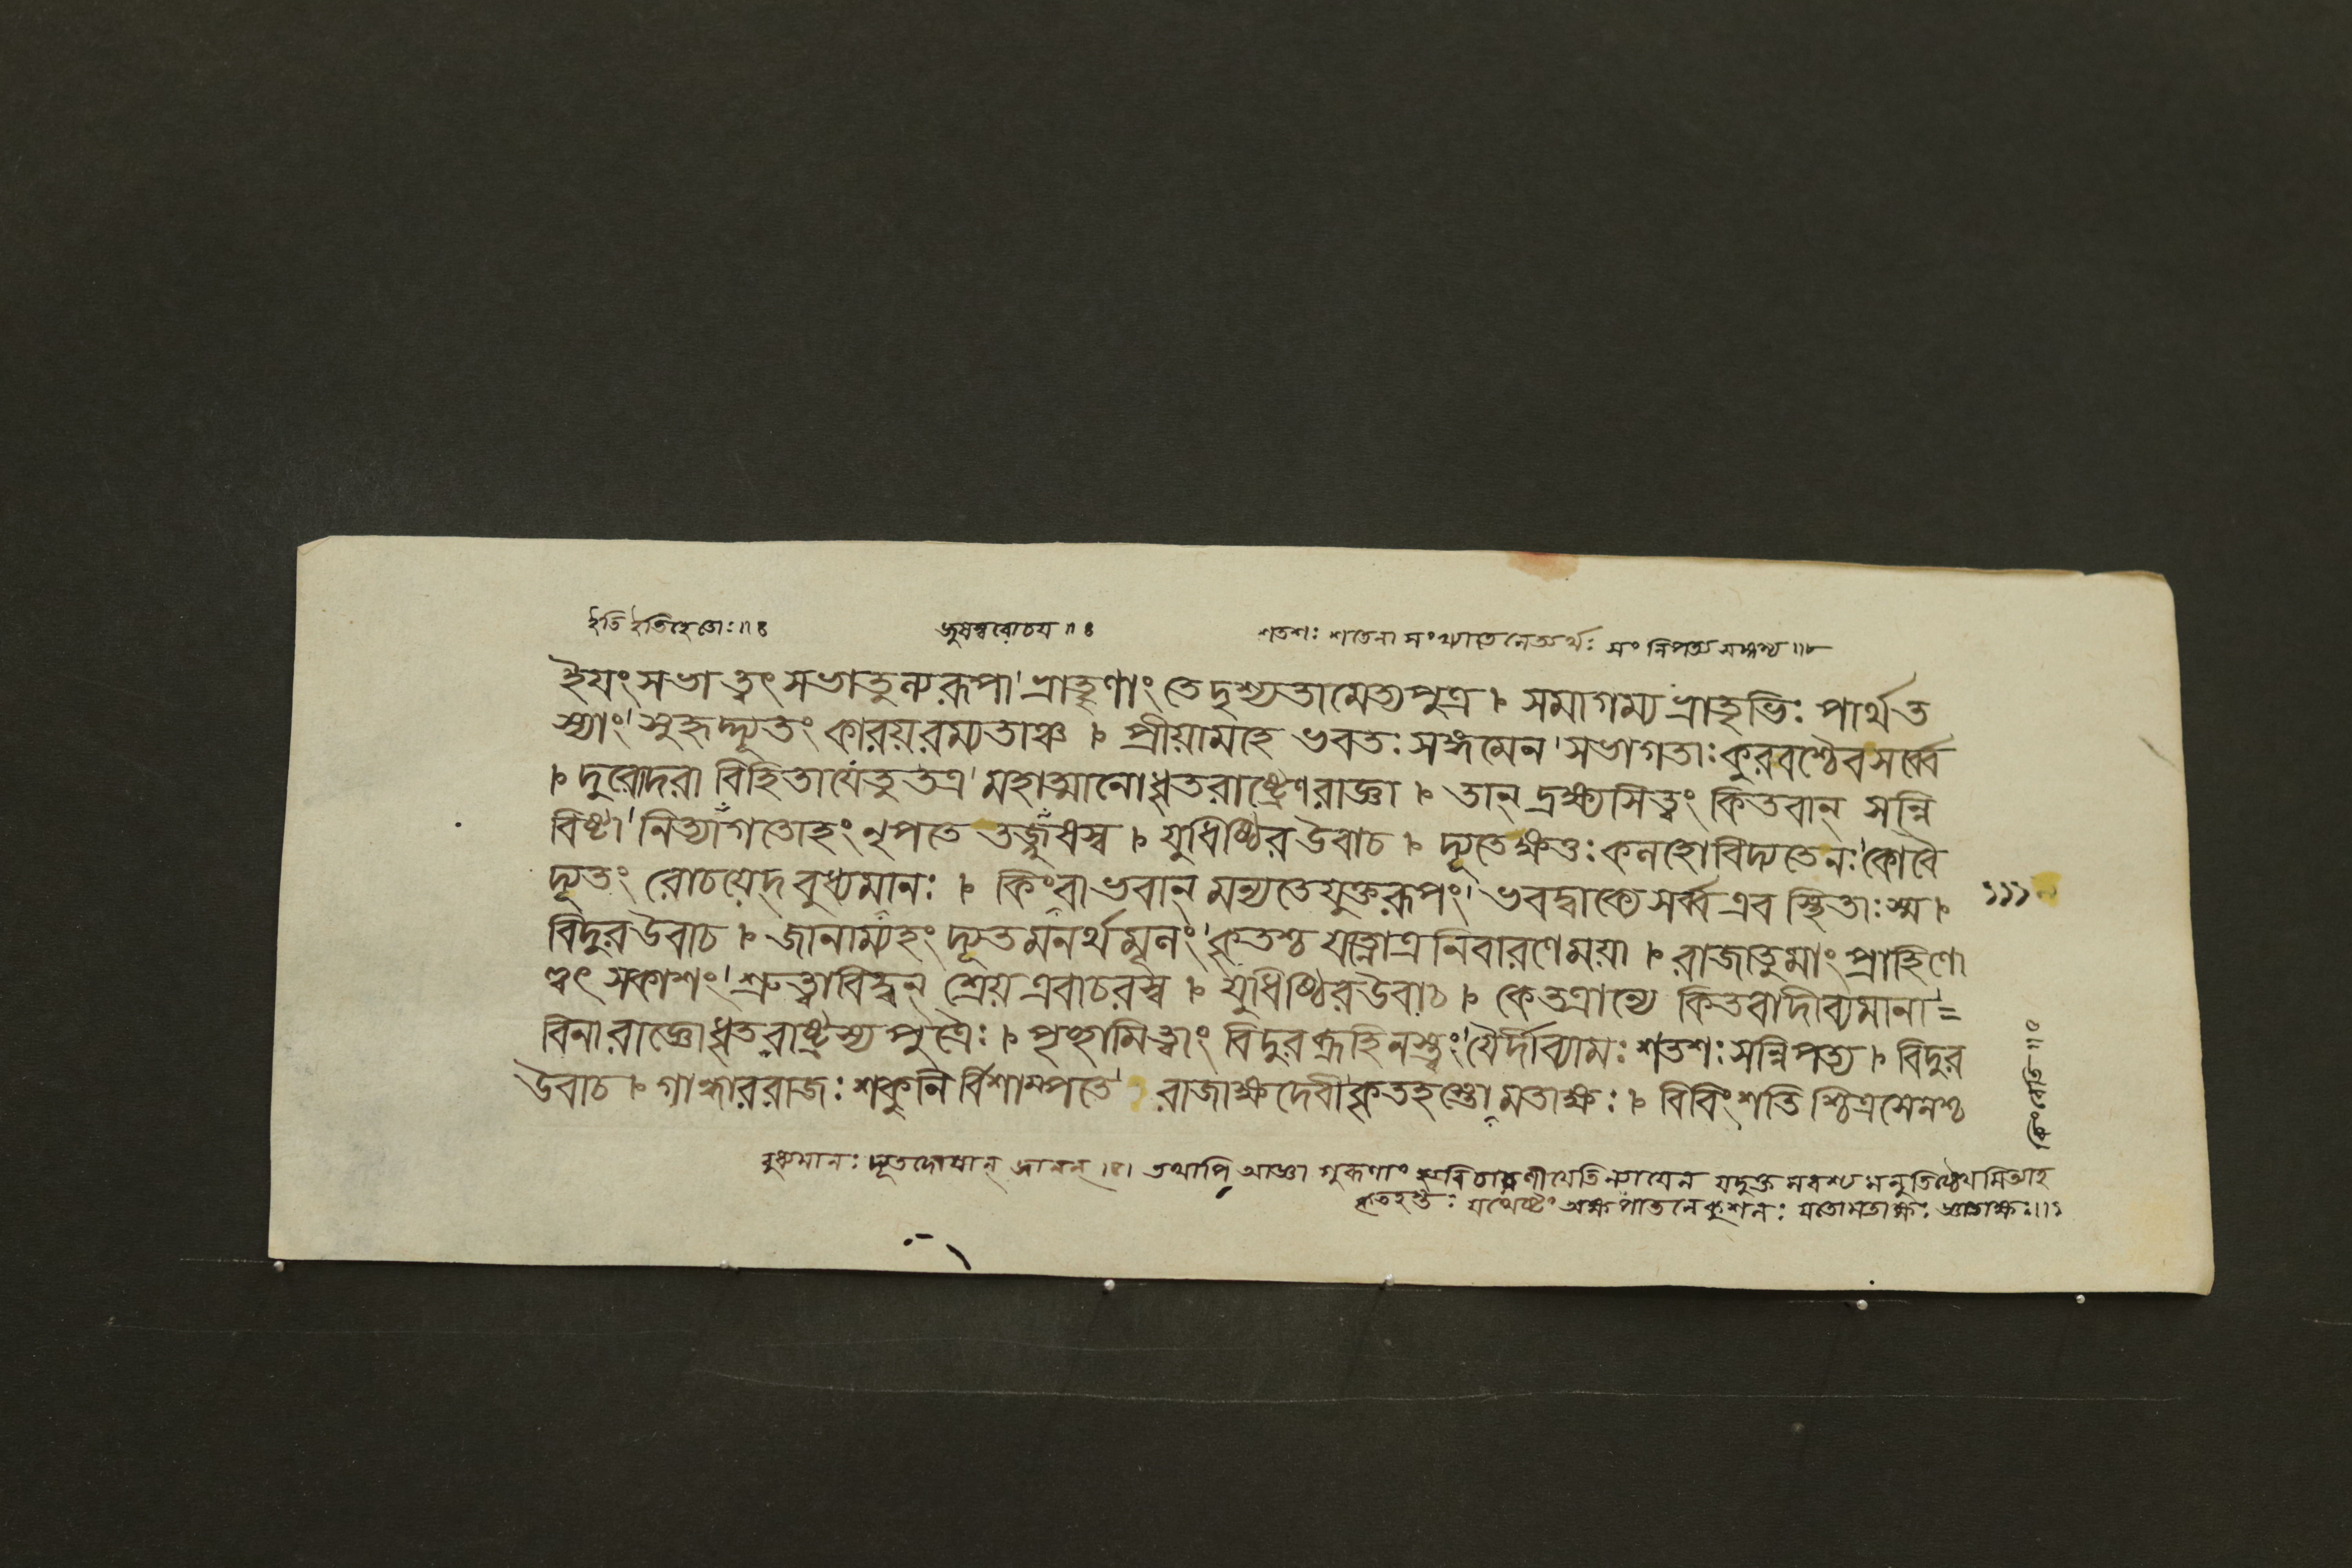 ইতি ইতিহেতোঃ॥৪ জুষস্বরোচয়॥৪ শতশঃ শতেনা সংখ্যাতেনেত্যর্থঃ সংনিপত্য
ইয়ং সভা ত্বৎ সভাতুল্যরূপা' ভ্রাতৄণাং তেদৃশ্যতামেত্যপুত্র ৷ সমাগম্য ভ্রাতৃভিঃ পার্থত
স্যাং' সুহৃদ্দ্যূতং কারয়রম্যতাঞ্চ ৷ প্রীয়ামহে ভবতঃ সঙ্গমেন' সভাগতাঃকুরবশ্চৈবসর্ব্বে
৷ দুরোদরা বিহিতাযেতুতত্র' মহাত্মানোধৃতরাষ্ট্রেণরাজ্ঞা ৷ তান্ দ্রক্ষ্যসিত্বং কিতবান্ সন্নি
বিষ্টা' নিত্যাগতোহং নৃপতে তজ্জুষস্ব ৷ যুধিষ্ঠির উবাচ ৷ দ্যূতেক্ষত্তঃ কলহোবিদ্যতেনঃ' কোবৈ
দ্যূতং রোচয়েদ্ বুধ্যমানঃ ৷ কিংবা ভবান্ মন্যতেযুক্তরূপং' ভবদ্বাক্যে সর্ব্বএব স্থিতাঃস্ম ৷
বিদুর উবাচ ৷ জানাম্যহং দ্যূতমনর্থমূলং' কৃতশ্চ যত্নোত্র নিবারণেময়া ৷ রাজাতুমাং প্রাহিণো
ত্ত্বৎ সকাশং' শ্রুত্বাবিদ্বন্ শ্রেয় এবাচরস্ব ৷ যুধিষ্ঠিরউবাচ ৷ কেতত্রান্যে কিতবাদীব্যমানা'=
বিনারাজ্ঞোধৃতরাষ্ট্রস্য পুত্রৈঃ ৷ পৃচ্ছামিত্বাং বিদুরব্রূহিনস্ত্বং' যৈর্দীব্যামঃ শতশঃ সন্নিপত্য ৷ বিদুর
উবাচ ৷ গান্ধাররাজঃ শকুনি র্বিশাম্পতে' রাজাক্ষদেবী কৃতহস্তো মতাক্ষঃ ৷ বিবিংশতি শ্চিত্রসেনশ্চ
বুধ্যমানঃ দ্যূতদোষান্ জানন্ ।৫। তথাপি আজ্ঞা গুরূণাং হ্যবিচারণীয়েতিন্যায়েন যদুক্ত মবশ্য মনুতিষ্ঠেয়মিত্যাহ
কৃতহস্তঃ যথেষ্টং অক্ষ পাতনে কুশলঃ যতোমতাক্ষঃ জ্ঞাতাক্ষঃ॥৯